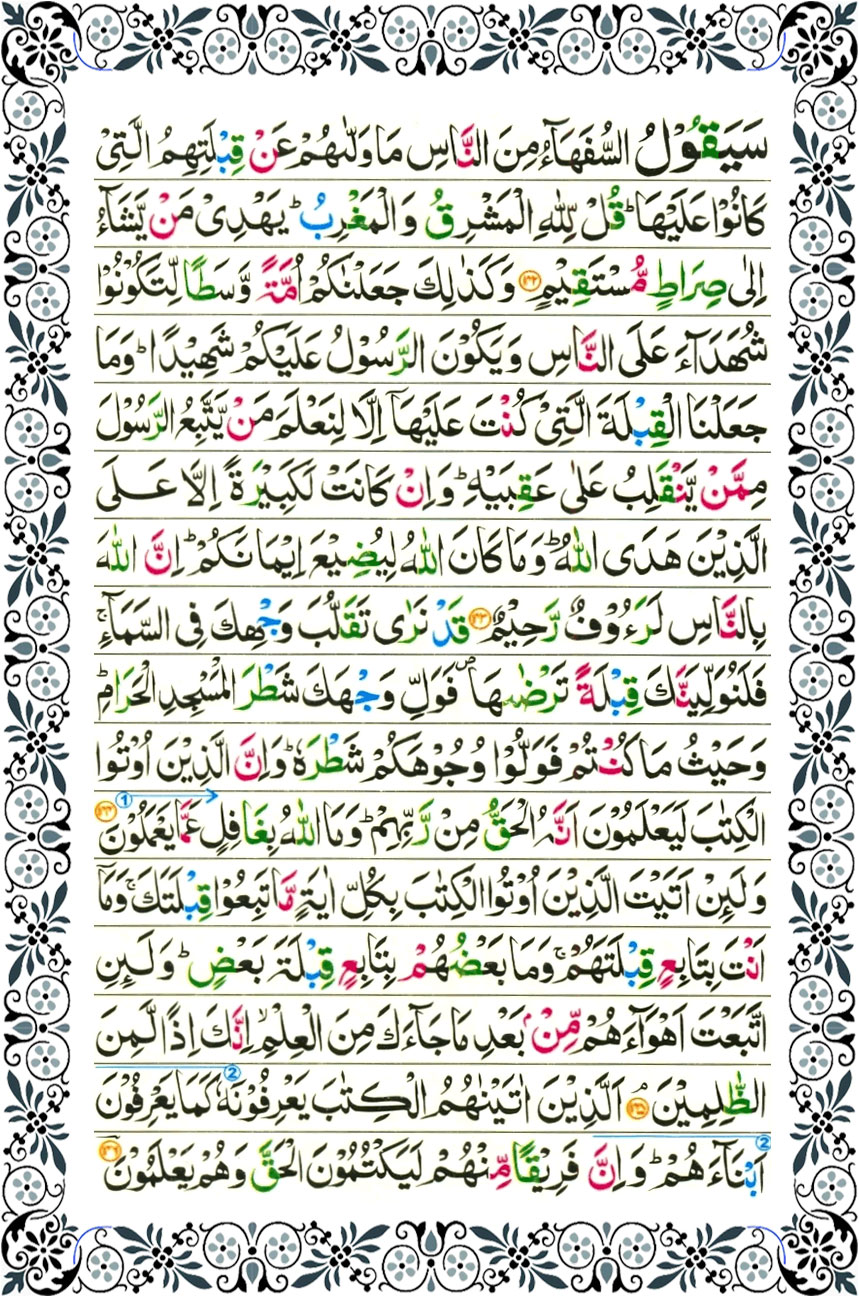 سَيَقُوْلُ السُّفَهَآءُ مِنَ النَّاسِ مَا وَلّٰىهُمْ عَنْ قِبْلَتِهِمُ الَّتِىْ
كَانُوْا عَلَيْهَا ؕ قُلْ لِّلّٰهِ الْمَشْرِقُ وَالْمَغْرِبُ ؕ يَهْدِىْ مَنْ يَّشَآءُ
اِلٰى صِرَاطٍ مُّسْتَقِيْمٍ ۝۱۴۲ وَكَذٰلِكَ جَعَلْنٰكُمْ اُمَّةً وَّسَطًا لِّتَكُوْنُوْا
شُهَدَآءَ عَلَى النَّاسِ وَيَكُوْنَ الرَّسُوْلُ عَلَيْكُمْ شَهِيْدًا ؕ وَمَا
جَعَلْنَا الْقِبْلَةَ الَّتِىْ كُنْتَ عَلَيْهَآ اِلَّا لِنَعْلَمَ مَنْ يَّتَّبِعُ الرَّسُوْلَ
مِمَّنْ يَّنْقَلِبُ عَلٰى عَقِبَيْهِ ؕ وَاِنْ كَانَتْ لَكَبِيْرَةً اِلَّا عَلَى
الَّذِيْنَ هَدَى اللّٰهُ ؕ وَمَا كَانَ اللّٰهُ لِيُضِيْعَ اِيْمَانَكُمْ ؕ اِنَّ اللّٰهَ
بِالنَّاسِ لَرَءُوْفٌ رَّحِيْمٌ ۝۱۴۳ قَدْ نَرٰى تَقَلُّبَ وَجْهِكَ فِى السَّمَآءِ ۚ
فَلَنُوَلِّيَنَّكَ قِبْلَةً تَرْضٰىهَا ۪ فَوَلِّ وَجْهَكَ شَطْرَ الْمَسْجِدِ الْحَرَامِ ؕ
وَحَيْثُ مَا كُنْتُمْ فَوَلُّوْا وُجُوْهَكُمْ شَطْرَهٗ ؕ وَاِنَّ الَّذِيْنَ اُوْتُوا
الْكِتٰبَ لَيَعْلَمُوْنَ اَنَّهُ الْحَقُّ مِنْ رَّبِّهِمْ ؕ وَمَا اللّٰهُ بِغَافِلٍ عَمَّا يَعْمَلُوْنَ ۝۱۴۴ ①
وَلَئِنْ اَتَيْتَ الَّذِيْنَ اُوْتُوا الْكِتٰبَ بِكُلِّ اٰيَةٍ مَّا تَبِعُوْا قِبْلَتَكَ ۚ وَمَآ
اَنْتَ بِتَابِعٍ قِبْلَتَهُمْ ۚ وَمَا بَعْضُهُمْ بِتَابِعٍ قِبْلَةَ بَعْضٍ ؕ وَلَئِنِ
اتَّبَعْتَ اَهْوَآءَهُمْ مِّنْۢ بَعْدِ مَا جَآءَكَ مِنَ الْعِلْمِ ۙ اِنَّكَ اِذًا لَّمِنَ
الظّٰلِمِيْنَ ۘ ۝۱۴۵ اَلَّذِيْنَ اٰتَيْنٰهُمُ الْكِتٰبَ يَعْرِفُوْنَهٗ كَمَا يَعْرِفُوْنَ ②
اَبْنَآءَهُمْ ؕ وَاِنَّ فَرِيْقًا مِّنْهُمْ لَيَكْتُمُوْنَ الْحَقَّ وَهُمْ يَعْلَمُوْنَ ۝۱۴۶ ②